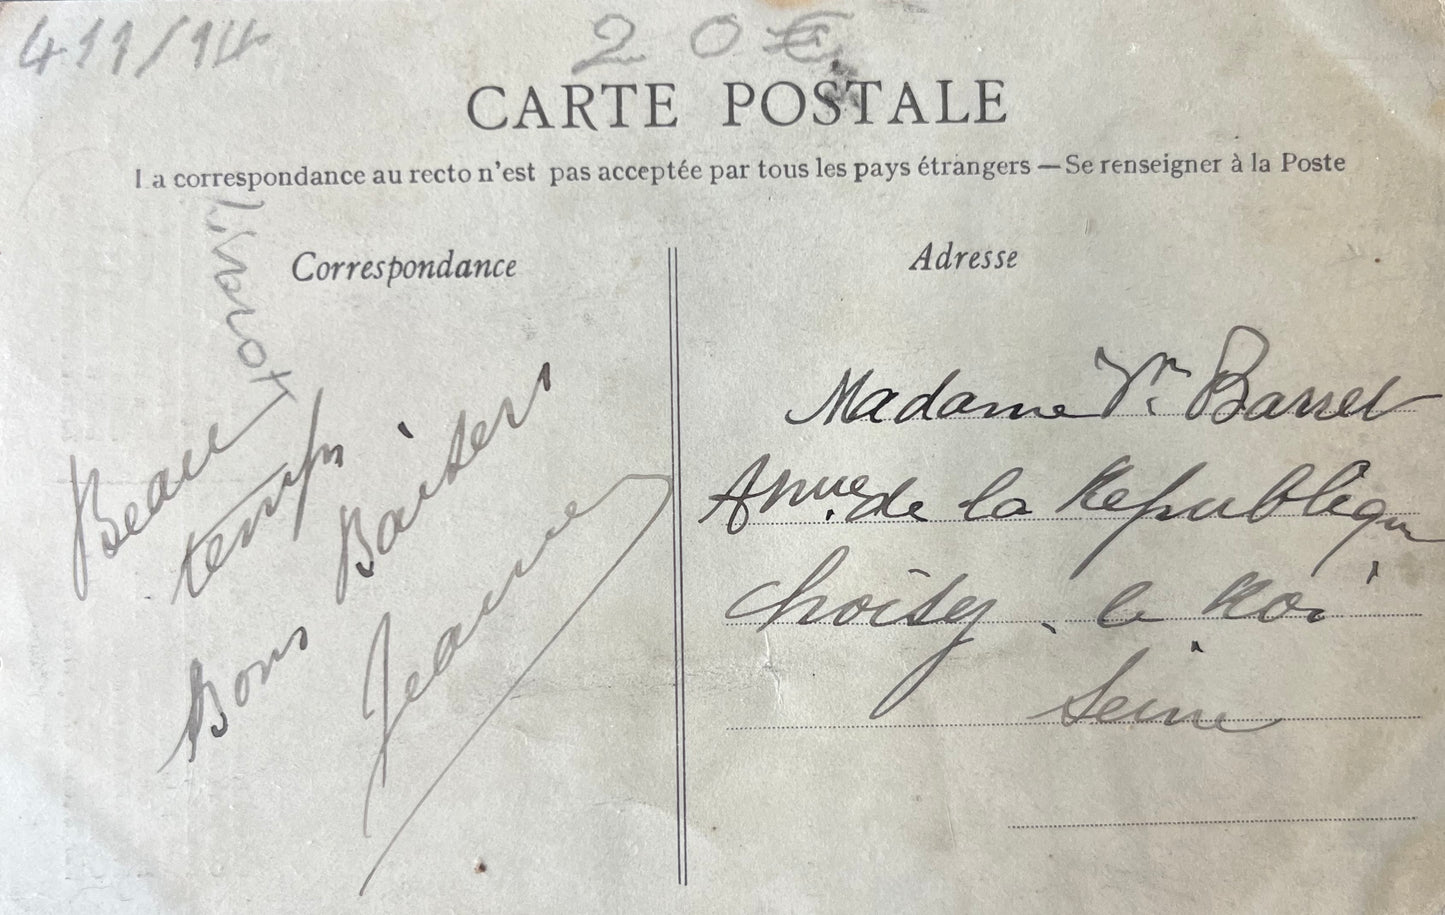 411/14
20€
CARTE POSTALE
La correspondance au recto n'est pas acceptée par tous les pays étrangers — Se renseigner à la Poste
Correspondance
Beau
temps
Bons Baisers
Jeanne
Adresse
Madame Vve Barret
Anue de la Republique
Choisy. le Roi
Seine